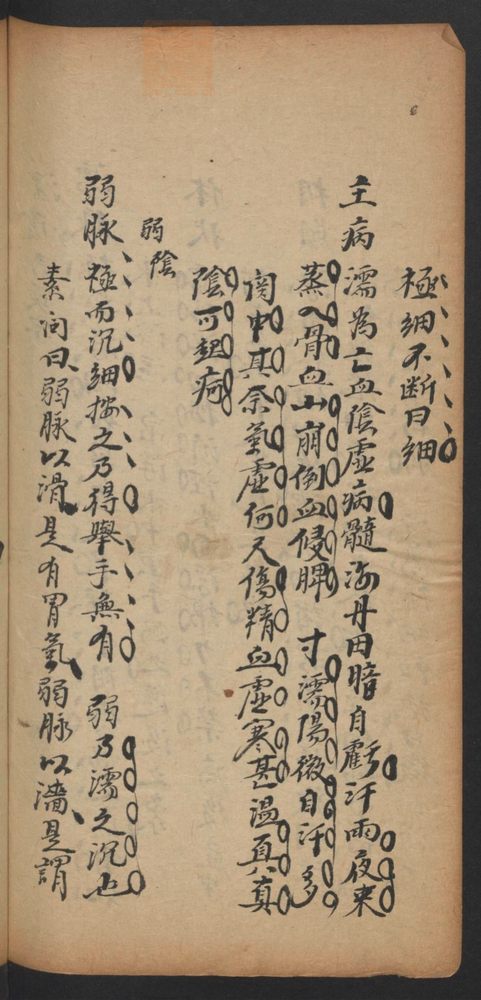 極細不断曰細
主病 濡為亡血陰虚病髓海丹田暗自虧汗雨夜来
蒸入骨血山崩倒血侵脾 寸濡陽微自汗多
関中其奈氣虚何尺傷精血虚寒甚温真
陰可起疴
弱陰
弱脉極而沉細按之乃得舉手無有 弱乃濡之沉也
素问曰弱脉以滑是有胃氣弱脉以濇是謂